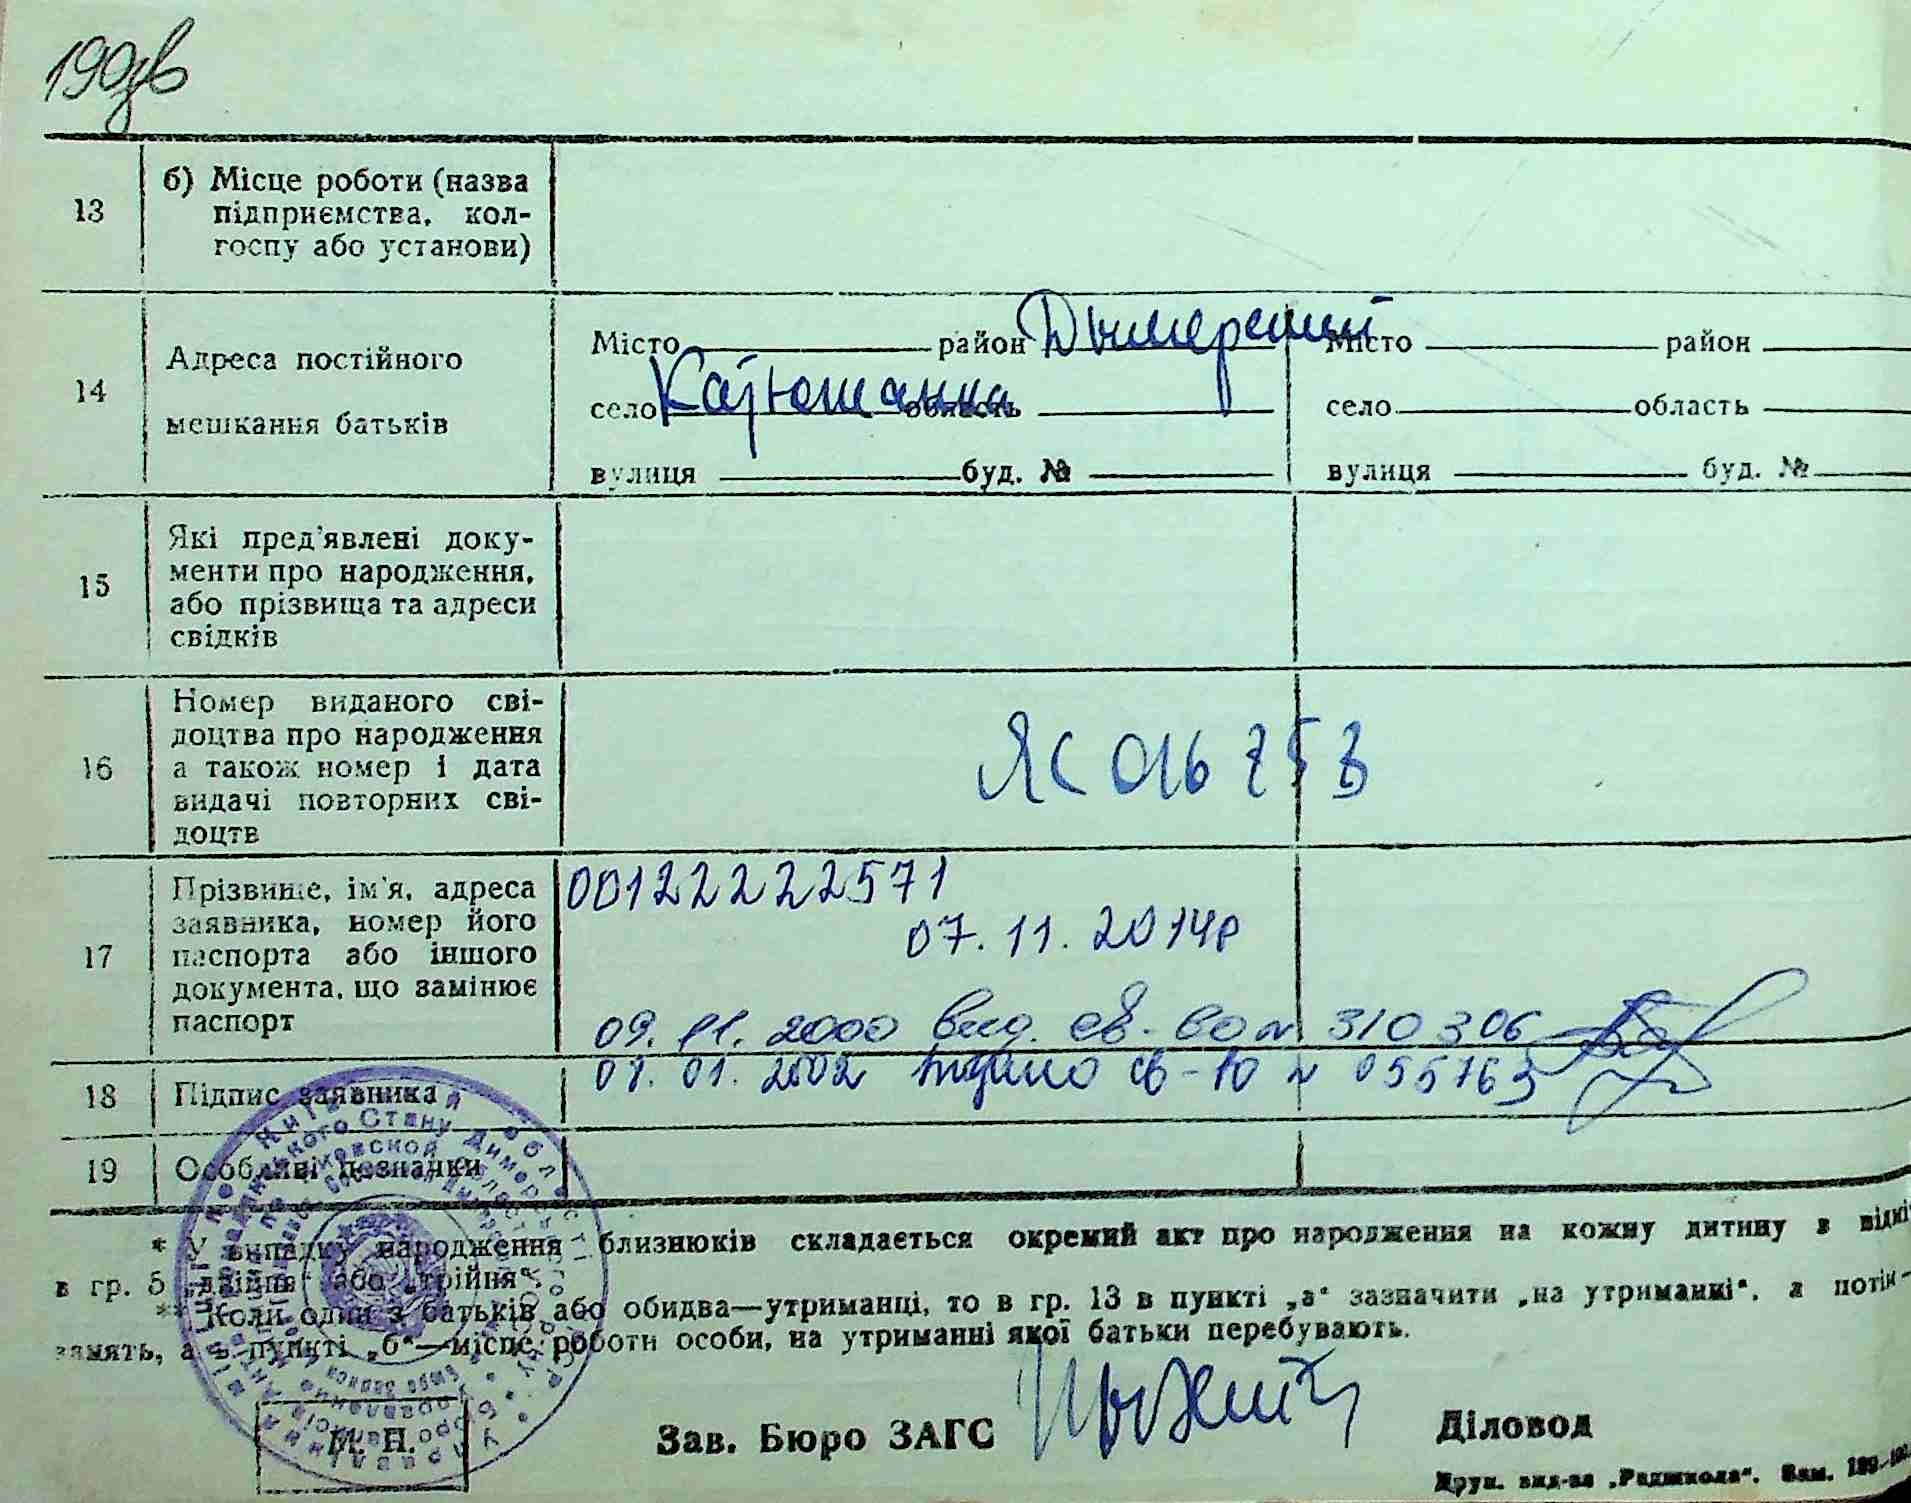 190зв
13 б) Місце роботи (назва
підприємства, кол-
госпу або установи)
14 Адреса постійного
мешкання батьків
Місто район Дымерский Місто район
село Катюшанка область село область
вулиця буд. № вулиця буд. №
15 Які пред'явлені доку-
менти про народження,
або прізвища та адреси
свідків
16 Номер виданого сві-
доцтва про народження
а також номер і дата
видачі повторних сві-
доцтв
ЯС 016753
17 Прізвище, ім'я, адреса
заявника, номер його
паспорта або іншого
документа, що замінює
паспорт
00122222571
07.11.2014р
09.11.2000 вид. св-во № 310306
18 Підпис заявника
01.2002 св-ю № 055763
19 Особливі познанки
* У випадку народження близнюків складається окремий акт про народження на кожну дитину з
в гр. 5 „двійня“ або „трійня“.
** Коли один з батьків або обидва—утриманці, то в гр. 13 в пункті „а“ зазначити „на утриманні“, а
а в пункті „б“—місце роботи особи, на утриманні якої батьки перебувають.
М. П.
Зав. Бюро ЗАГС
Діловод
Друк. вид-ва „Радшкола“. Зам.